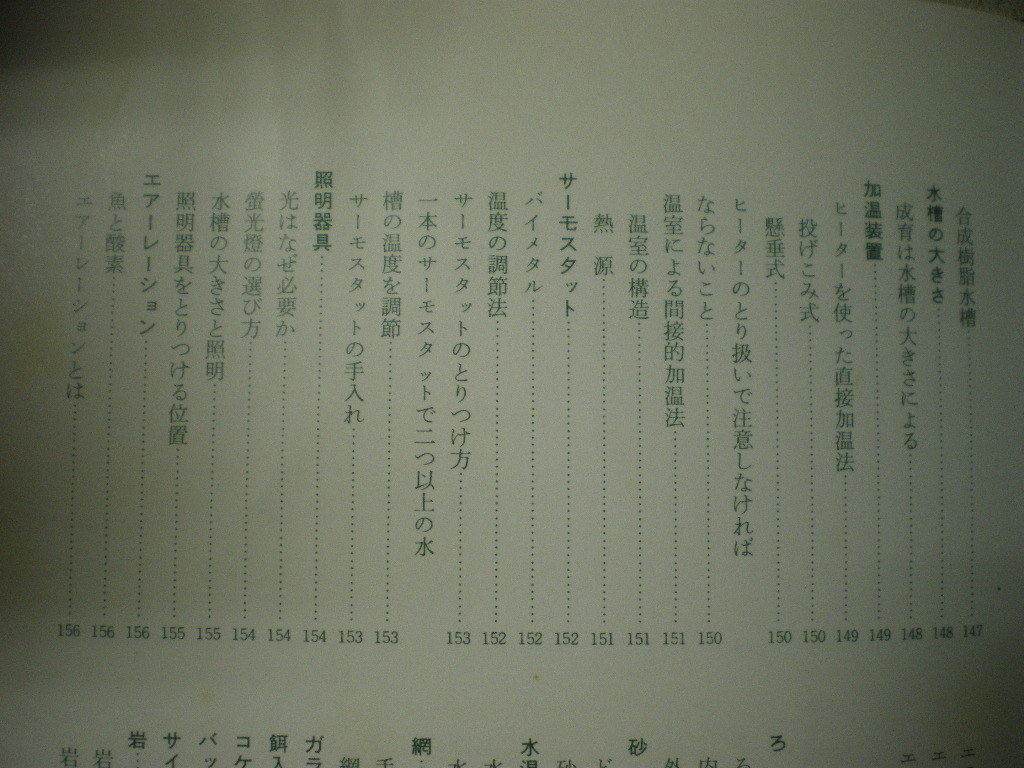 合成樹脂水槽……147
水槽の大きさ……148
成育は水槽の大きさによる……148
加温装置……149
ヒーターを使った直接加温法……149
投げこみ式……150
懸垂式……150
ヒーターのとり扱いで注意しなければ
ならないこと……150
温室による間接的加温法……151
温室の構造……151
熱　源……151
サーモスタット……152
バイメタル……152
温度の調節法……152
サーモスタットのとりつけ方……153
一本のサーモスタットで二つ以上の水
槽の温度を調節……153
サーモスタットの手入れ……153
照明器具……154
光はなぜ必要か……154
螢光燈の選び方……154
水槽の大きさと照明……155
照明器具をとりつける位置……155
エアーレーション……156
魚と酸素……156
エアーレーションとは……156
エ
エ
ろ
ろ
内
外
砂
ド
砂
水温
水
水
網
手
網
ガラ
餌入
コケ
バッ
サイ
岩
岩
岩